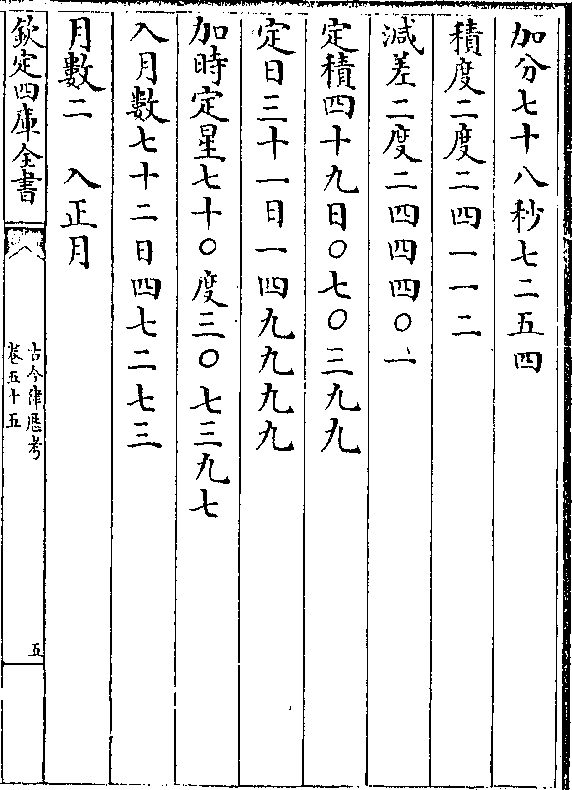 加分七十八秒七二五四
積度二度二四一一二
減差二度二四四四〇一
定積四十九日〇七〇三九九
定日三十一日一四九九九九
加時定星七十〇度三〇七三九七
入月數七十二日四七二七三
月數二　入正月
欽定四庫全書
古今律歷考
卷五十五
五